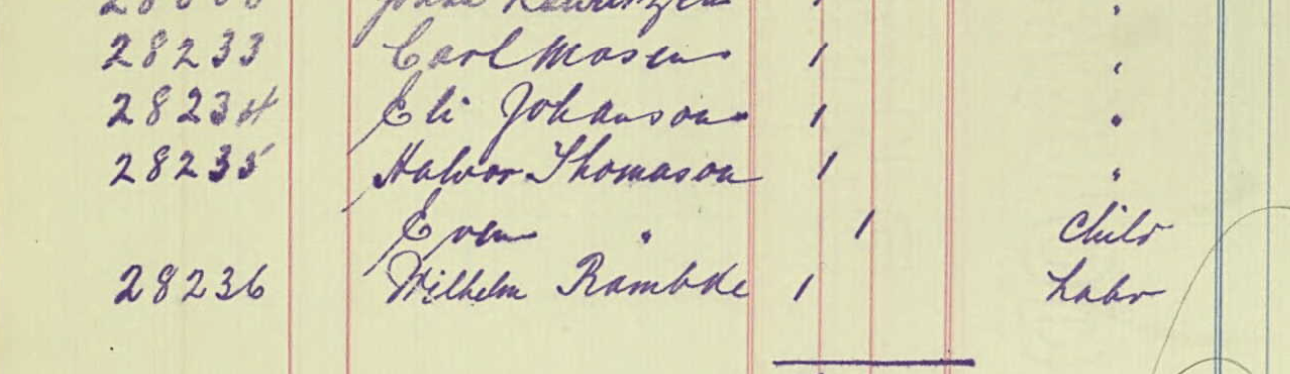 28233 Carl Mosen 1 "
28234 Eli Johanson 1 "
28235 Halvor Thomason 1 "
Even " 1 Child
28236 Wilhelm Rambke 1 Labr